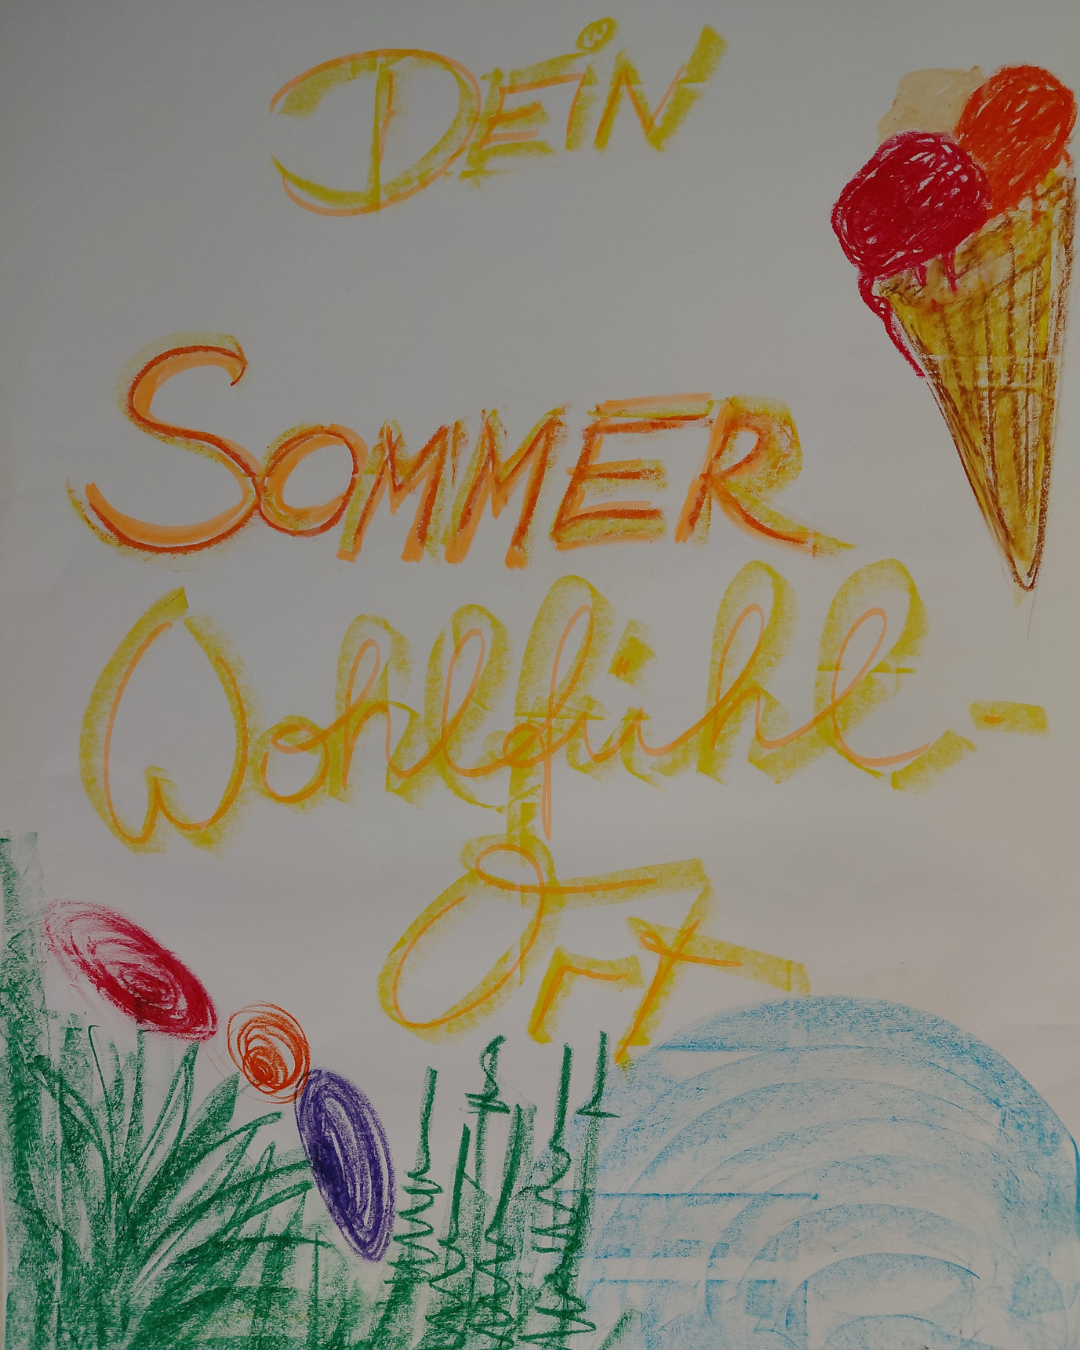 DEiN
SOMMER
Wohlfühl-
Ort